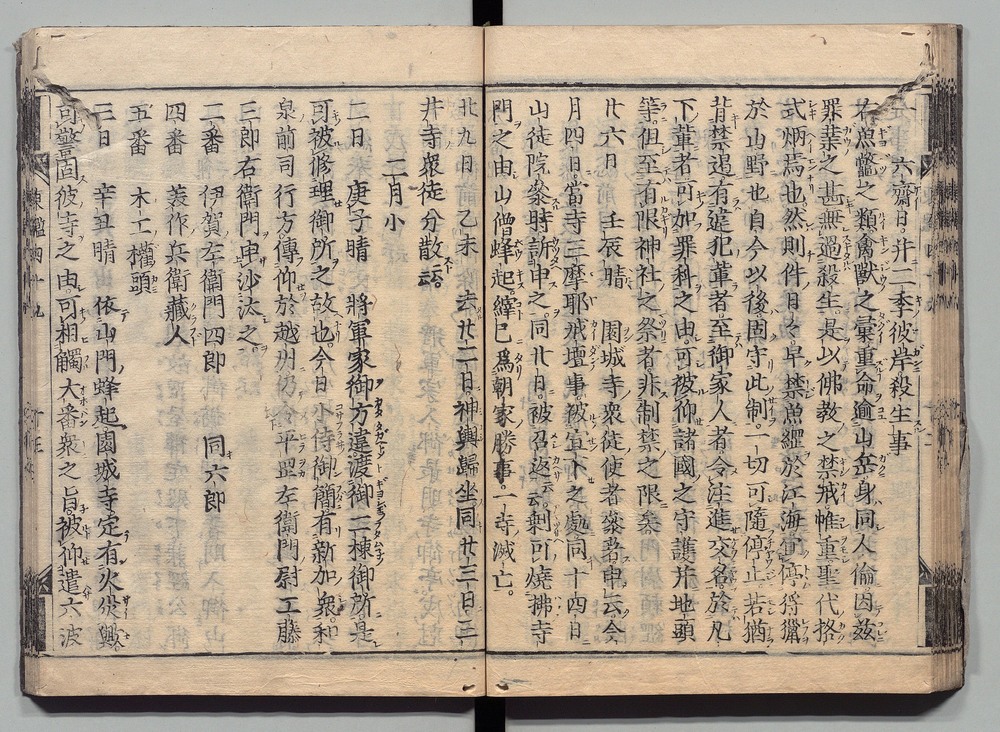 一六齋日幷二季彼岸殺生事
右魚鼈之類禽獸之彙重命逾山岳身同人倫因茲
罪業之甚無過殺生是以佛教之禁戒惟重聖代格
式炳焉也然則件日々早禁魚網於江海宜停狩獵
於山野也自今以後固守此制一切可隨停止若猶
背禁遏有違犯輩者至御家人者令注進交名於凡
下輩者可加罪科之由可被仰諸國之守護幷地頭
等但至有限神社之祭者非制禁之限矣
廿六日 壬辰晴 園城寺衆徒使者參著申云今
月四日當寺三摩耶戒壇事被宣下之處同十四日
山徒院參時訴申之同廿日被召返云云剩可燒拂寺
門之由山僧蜂起繹已爲朝家勝事一寺滅亡
廿九日 乙未 去廿二日神輿歸坐同廿三日三
井寺衆徒分散云云
二月小
二日 庚子晴 將軍家御方違渡御二棟御所是
可被修理御所之故也今日小侍御簡有新加衆和
泉前司行方傳仰於越州仍令平罡左衞門尉工藤
三郎右衞門申沙汰之
二番 伊賀左衞門四郎 同六郎
四番 美作兵衞藏人
五番 木工權頭
三日 辛丑晴 依山門蜂起園城寺定有火災歟
可警固彼寺之由可相觸大番衆之旨被仰遣六波